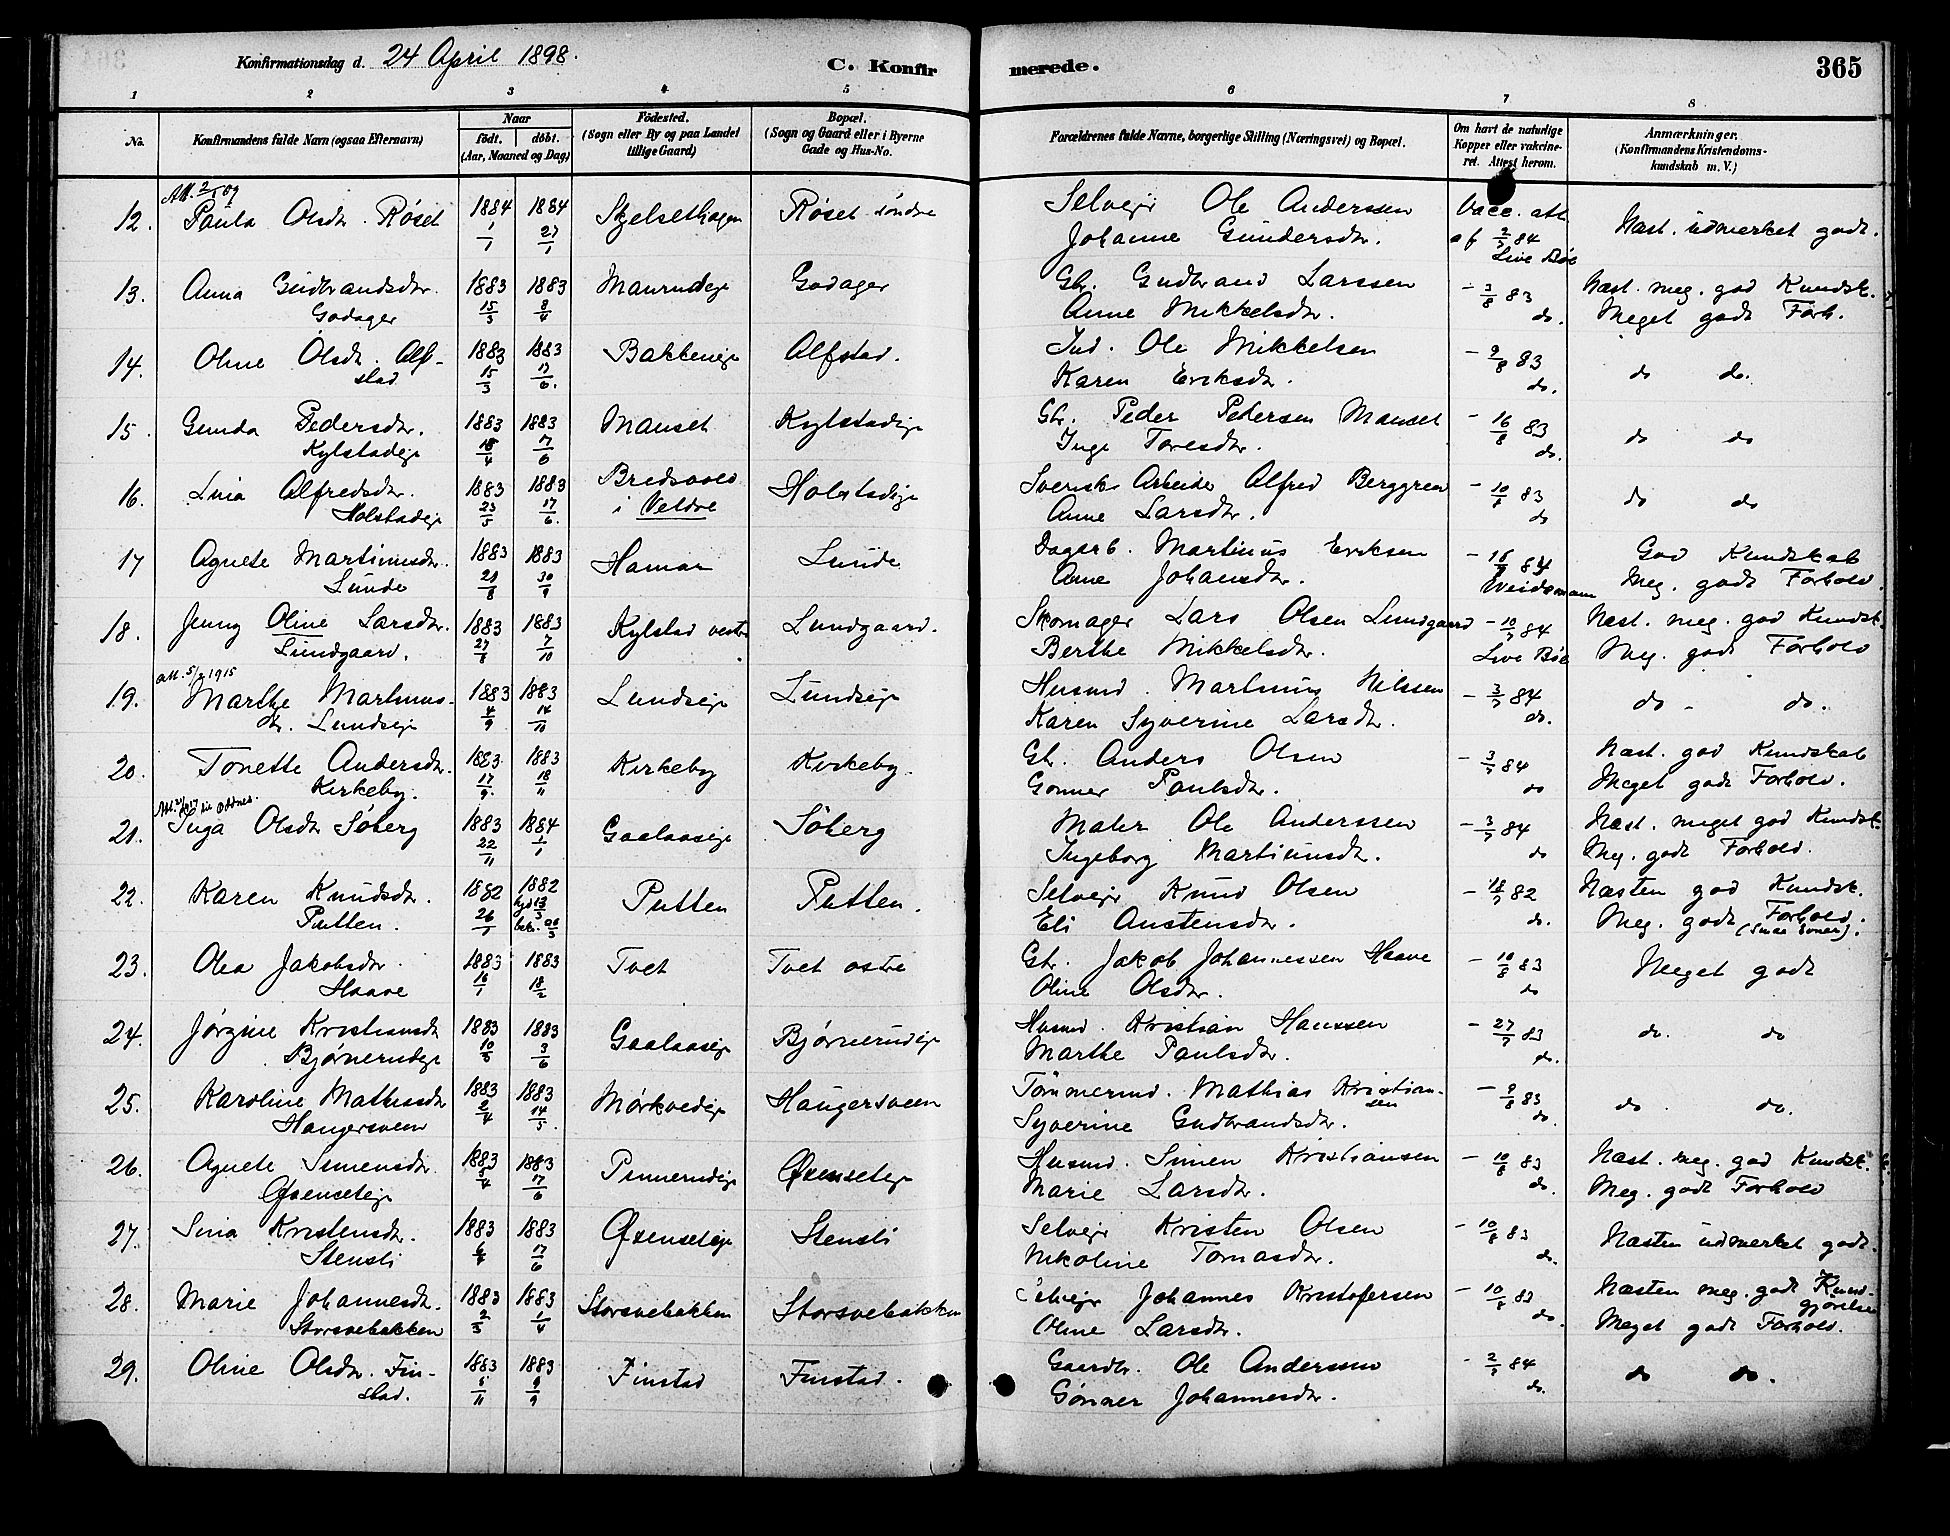 Konfirmationsdag d. 24 April 1898.
C. Konfirmerede.
365
1 2 3 4 5 6 7 8
No.
Konfirmandens fulde Navn (ogsaa Efternavn)
Naar
födt. döbt.
(Aar, Maaned og Dag)
Födested.
(Sogn eller By og paa Landet
tillige Gaard)
Bopæl.
(Sogn og Gaard eller i Byerne
Gade og Hus-No.
Forældrenes fulde Navne, borgerlige Stilling (Næringsvei) og Bopæl.
Om havt de naturlige
Kopper eller vakcine-
ret. Attest herom.
Anmærkninger.
(Konfirmandens Kristendoms-
kundskab m. V.)
12. Paula Olsdtr. Røset 1884 1/1 1884 27/1 Skjelsethagen Røset søndre
Selveier Ole Anderssen
Johanne Gundersdtr.
Vacc. att.
af 2/7 84
Live Bøe
Næst. udmerket godt.
13. Anna Gudbrandsdtr.
Godager
1883 15/3 1883 8/4 Maurudeje Godager
Gbr. Gudbrand Larssen
Anne Mikkelsdtr.
- 3/8 83
do.
Næst. meg. god Kundsk.
Meget godt Forh.
14. Oline Olsdtr. Alf-
stad
1883 15/3 1883 17/6 Bakkeneje Alfstad.
Ind. Ole Mikkelsen
Karen Eriksdtr.
- 9/8 83
do.
do do.
15. Gunda Pedersdtr.
Kylstadeje
1883 18/4 1883 17/6 Manset Kylstadeje
Gbr. Peder Pedersen Manset
Inge Toresdtr.
- 16/8 83
do.
do do
16. Lina Alfredsdtr.
Holstadeje
1883 23/5 1883 17/6 Bredvold
i Veldre
Holstadeje
Svensk Arbeider Alfred Berggren
Anne Larsdtr.
- 10/8 83
do
do do
17 Agnete Martinusdtr.
Lunde
1883 21/8 1883 30/9 Hamar Lunde
Dagarb. Martinus Eriksen
Anne Johansdtr.
God Kundskab
Meg. godt Forhold.
18. Jenny Oline Larsdtr.
Lundgaard.
1883 27/8 1883 7/10 Kylstad vestre Lundgaard.
Skomager Lars Olsen Lundgaard
Berthe Mikkelsdtr.
- 10/7 84
Live Bøe
Næst. meg. god Kundsk.
Meg. godt Forhold
19. att. 5/2 1915
Marthe Martinus-
dtr. Lundseje
1883 4/9 1883 14/10 Lundseje Lundseje
Husmd. Martinus Nilssen
Karen Syverine Larsdtr.
- 3/7 84
do.
do - do.
20. Tonette Andersdtr.
Kirkeby.
1883 17/9 1883 18/11 Kirkeby Kirkeby.
Gbr. Anders Olsen
Gonner Paulsdtr.
- 3/7 84
do
Næst. god Kundskab
Meget godt Forhold.
21. Inga Olsdtr Søberg 1883 22/11 1884 1/1 Gaalaaseje Søberg
Maler Ole Anderssen
Ingeborg Martinusdtr.
- 3/7 84
do
Næst. meget god Kundsk.
Meg. godt Forhold.
22. Karen Knudsdtr.
Putten.
1882 26/1 1882 Putten Putten.
Selveier Knud Olsen
Eli Austensdtr.
- 18/7 82
do.
Næsten god Kundsk.
Meg. godt Forhold.
(Smaa Evner).
23. Olea Jakobsdtr.
Haave
1883 16/1 1883 18/2 Tvet Tvet østre
Gbr. Jakob Johannessen Haave
Oline Olsdtr.
- 10/8 83
do
Meget godt
24. Jørgine Kristiansdtr
Bjørnerudeje
1883 1883 3/6 Gaalaaseje Bjørnerudeje
Husmd. Kristian Hanssen
Marthe Paulsdtr.
- 27/7 83
do.
do. do
25. Karoline Mathisdtr
Haugersveen
1883 2/4 1883 14/5 Mørkvedeje Haugersveen
Tømmermd. Mathias Kristian-
sen
Syverine Gudbrandsdtr.
- 9/8 83
do.
do. do.
26. Agnete Simensdtr.
Øxenseteje
1883 5/4 1883 17/6 Pinnerudeje Øxenseteje
Husmd. Simen Kristiansen
Marie Larsdtr.
- 10/8 83
do.
Næst. meg. god Kundsk.
Meg. godt Forhold
27. Sina Kristensdtr.
Stensli
1883 1883 17/6 Øxenseteje Stensli
Selveier Kristen Olsen
Nikoline Tomasdtr.
- 10/8 83
do.
Næsten udmerket godt.
28. Marie Johannesdtr.
Storsvebakken
1883 2/3 1883 1/4 Storsvebakken Storsvebakken
Selveier Johannes Kristofersen
Oline Larsdtr.
- 10/8 83
do.
Næsten meg. godt Kund-
gjørelse
Meget godt Forhold.
29. Oline Olsdtr. Fin-
stad.
1883 1883 Finstad Finstad.
Gaardbr. Ole Anderssen
Gønner Johannesdtr.
- 2/7 84
do.
do do.